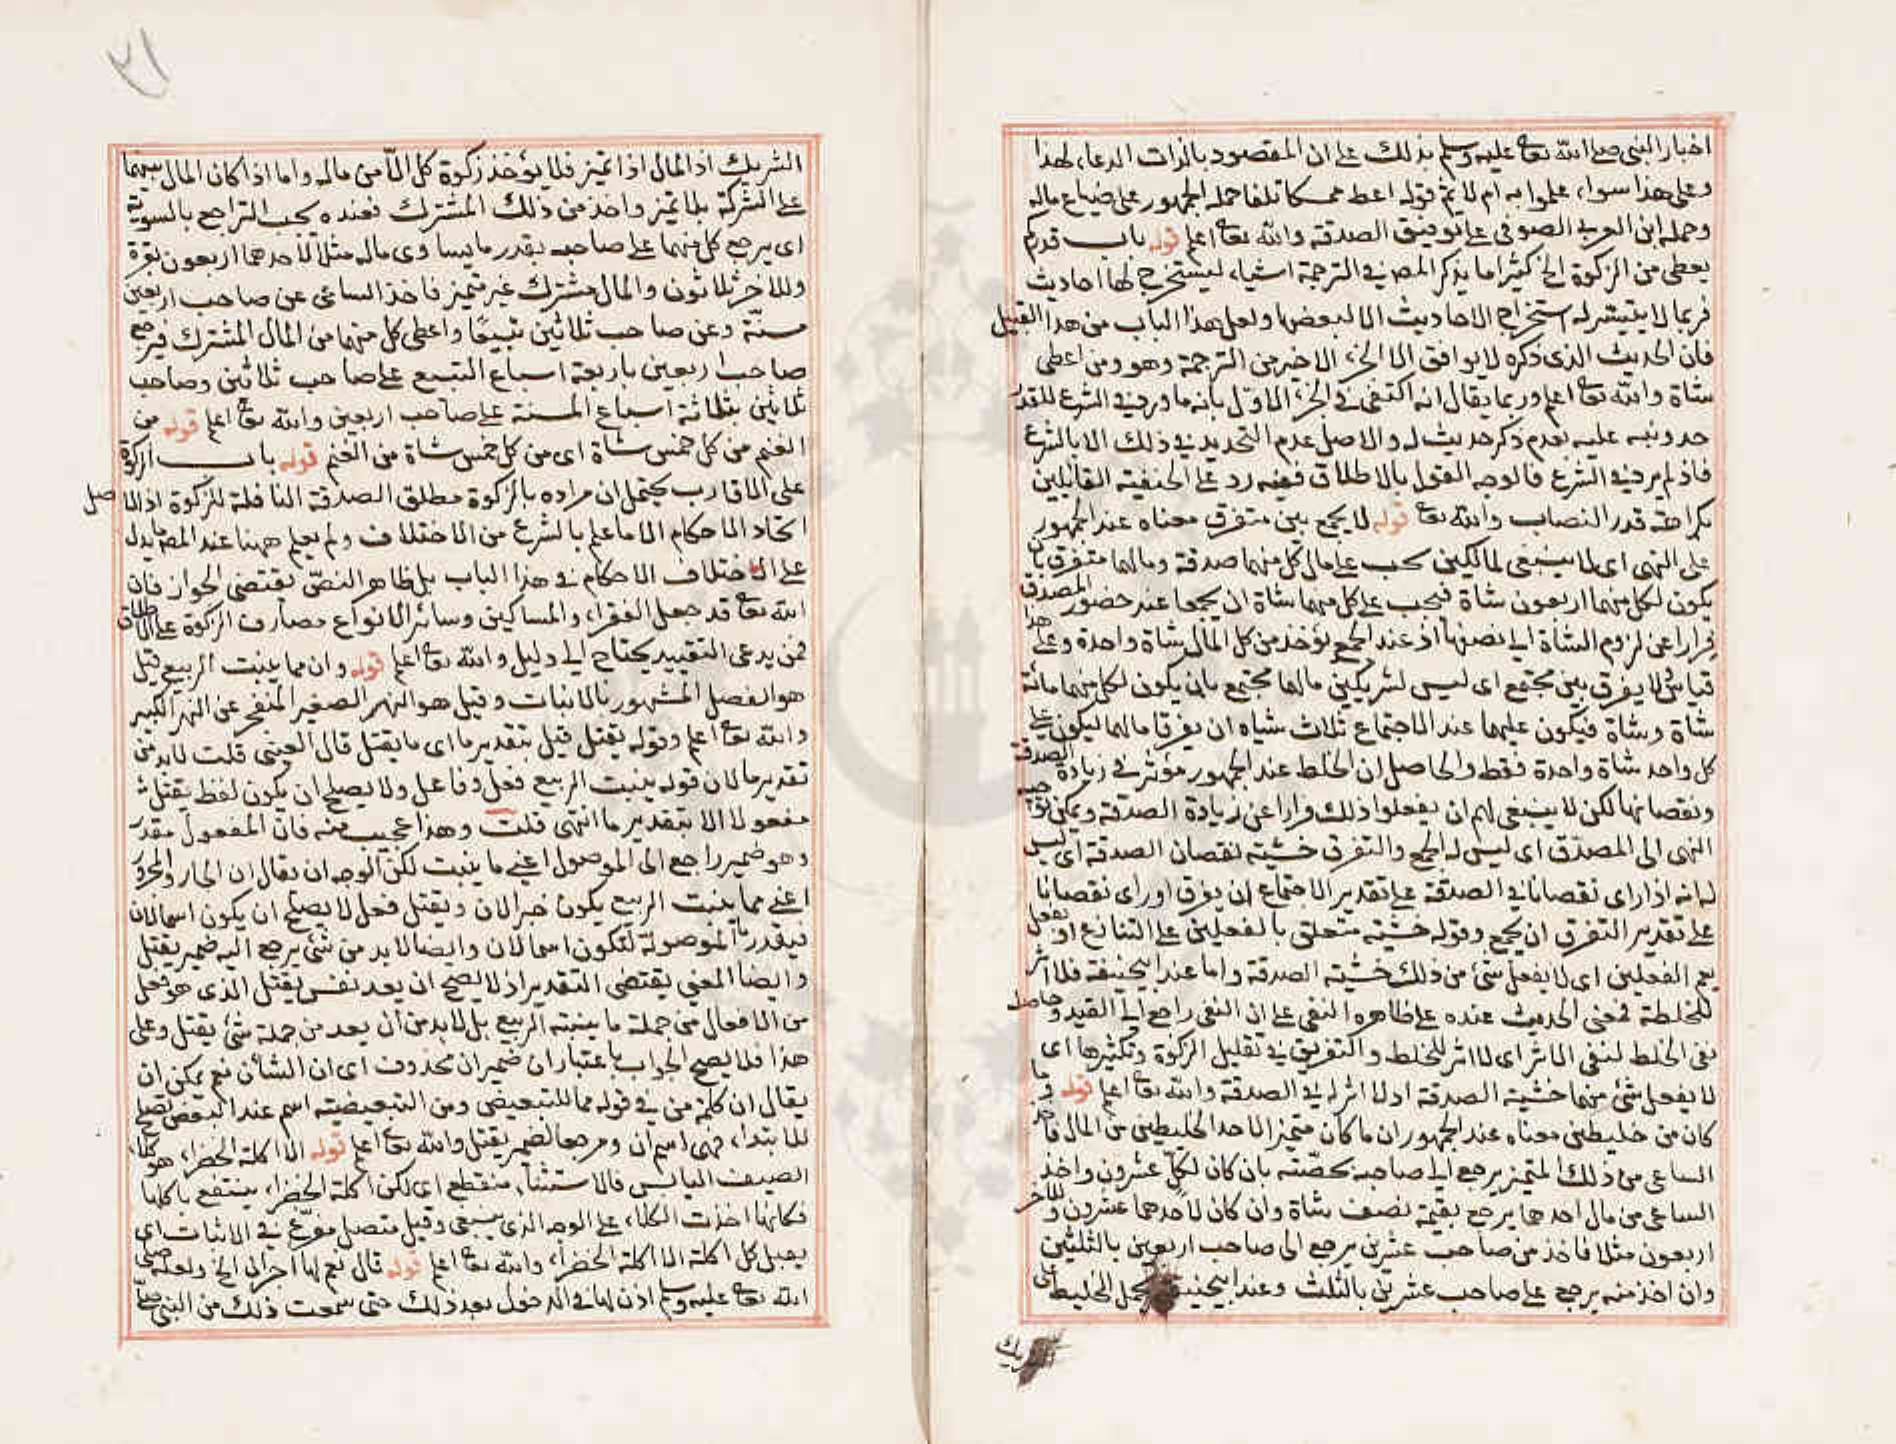 اخبار النبى صلى الله تعا عليه وسلم بذلك على ان المقصود بالذات الدعاء لهذا
وعلى هذا سواء علموا به ام لا ثم قوله اعط ممسكا تلفا حمله الجمهور على ضياع ماله
وحمله ابن العربى الصوفى على توفيق الصدقة والله تعا اعلم قوله باب قدركم
يعطى من الزكوة الخ كثيرا ما يذكر المص فى الترجمة اشياء ليستخرج لها احاديث
فربما لا يتيسر له استخراج الاحاديث الا لبعضها ولعل هذا الباب من هذا القبيل
فان الحديث الذى ذكره لا يوافق الا الجزء الاخير من الترجمة وهو ومن اعطى
شاة والله تعا اعلم وربما يقال انه اكتفى فى الجزء الاول بانه ما ورد فى الشرع للقدر
حد ونبه عليه بعدم ذكر حديث له والاصل عدم التحديد فى ذلك الا بالشرع
فاذ لم يرد فى الشرع فالوجه القول بالاطلاق ففيه رد على الحنفية القائلين
بكراهة قدر النصاب والله تعا قوله لا يجمع بين متفرق معناه عند الجمهور
على النهى اى لا ينبغى لمالكين يجب على مال كل منهما صدقة ومالهما متفرق بان
يكون لكل منهما اربعون شاة فيجب على كل منهما شاة ان يجمعا عند حضور المصدق
فرارا عن لزوم الشاة الى نصفها اذ عند الجمع يؤخذ من كل المال شاة واحدة وعلى هذا
قياس ولا يفرق بين مجتمع اى ليس لشريكين مالهما مجتمع بان يكون لكل منهما مائة
شاة وشاة فيكون عليهما عند الاجتماع ثلاث شياه ان يفرقا مالهما ليكون على
كل واحد شاة واحدة فقط والحاصل ان الخلط عند الجمهور مؤثر فى زيادة الصدقة
ونقصانها لكن لا ينبغى لهم ان يفعلوا ذلك فرارا عن زيادة الصدقة ويمكن توجيه
النهى الى المصدق اى ليس له الجمع والتفرق خشية نقصان الصدقة اى ليس
له انه اذا راى نقصانا فى الصدقة على تقدير الاجتماع ان يفرق او راى نقصانا
على تقدير التفرق ان يجمع وقوله خشية متعلق بالفعلين على التنازع او بفعل
يعم الفعلين اى لا يفعل شئ من ذلك خشية الصدقة واما عند ابيحنيفة فلا اثر
للخلطة فمعنى الحديث عنده على ظاهره النفى على ان النفى راجع الى القيد وحاصله
نفى الخلط لنفى الاثر اى لا اثر للخلط والتفريق فى تقليل الزكوة وتكثيرها اى
لا يفعل شئ منهما خشية الصدقة اذ لا اثر له فى الصدقة والله تعا اعلم قوله وما
كان من خليطين معناه عند الجمهور ان ما كان متميز الاحد الخليطين من المال فاخذ
الساعى من ذلك المتميز يرجع الى صاحبه بحصته بان كان لكل عشرون واخذ
الساعى من مال احدهما يرجع بقيمة نصف شاة وان كان لاحدهما عشرون وللاخر
اربعون مثلا فاخذ من صاحب عشرين يرجع الى صاحب اربعين بالثلثين
وان اخذ منه يرجع على صاحب عشرين بالثلث وعند ابيحنيفة يحمل الخليط على
الشريك
٢١
الشريك اذ المال اذا تميز فلا يؤخذ زكوة كل الا من ماله واما اذا كان المال بينهما
على الشركة بلا تميز واخذ من ذلك المشترك فعنده يجب التراجع بالسوية
اى يرجع كل منهما على صاحبه بقدر ما يساوى ماله مثلا لاحدهما اربعون بقرة
وللاخر ثلاثون والمال مشترك غير متميز فاخذ الساعى عن صاحب اربعين
مسنة وعن صاحب ثلاثين تبيعا واعطى كل منهما من المال المشترك فيرجع
صاحب اربعين باربعة اسباع التبيع على صاحب ثلاثين وصاحب
ثلاثين بثلاثة اسباع المسنة على صاحب اربعين والله تعا اعلم قوله من
الغنم من كل خمس شاة اى من كل خمس شاة من الغنم قوله باب الزكوة
على الاقارب يحتمل ان مراده بالزكوة مطلق الصدقة النافلة للزكوة اذ الاصل
اتحاد الاحكام الا ما علم بالشرع من الاختلاف ولم يعلم ههنا عند المص ما يدل
على اختلاف الاحكام فى هذا الباب بل ظاهر النص يقتضى الجواز فان
الله تعا قد جعل الفقراء والمساكين وسائر الانواع مصارف الزكوة على الاطلاق
فمن يدعى التقييد يحتاج الى دليل والله تعا اعلم قوله وان مما ينبت الربيع قيل
هو الفصل المشهور بالانبات وقيل هو النهر الصغير المنفجر عن النهر الكبير
والله تعا اعلم وقوله يقتل قيل بتقدير ما اى ما يقتل قال العينى قلت لابد من
تقدير ما لان قوله ينبت الربيع فعل وفاعل ولا يصلح ان يكون لفظ يقتل
مفعولا الا بتقدير ما انتهى قلت وهذا عجيب منه فان المفعول مقدر
وهو ضمير راجع الى الموصول اعنى ما ينبت لكن الوجه ان يقال ان الجار والمجرور
اعنى مما ينبت الربيع يكون خبر الان ويقتل فعل لا يصلح ان يكون اسما لان
فيقدر ما الموصولة لتكون اسما لان وايضا لابد من شئ يرجع اليه ضمير يقتل
وايضا المعنى يقتضى التقدير اذ لا يصح ان يعد نفس يقتل الذى هو فعل
من الافعال من جملة ما ينبته الربيع بل لابد من ان يعد من جملة شئ يقتل وعلى
هذا فلا يصح الجواب باعتبار ان ضمير ان محذوف اى ان الشأن نعم يمكن ان
يقال ان كلمة من فى قوله مما للتبعيض ومن التبعيضية اسم عند البعض تصلح
للابتداء فهى اسم ان ومرجعا لضمير يقتل والله تعا اعلم قوله الا اكلة الخضراء هو كلاء
الصيف اليابس فالاستثناء منقطع اى لكن اكلة الخضراء ينتفع باكلها
فكانها اخذت الكلاء على الوجه الذى ينبغى وقيل متصل مفرغ فى الاثبات اى
يقتل كل اكلة الا اكلة الخضراء والله تعا اعلم قوله قال نعم لها اجران الخ ولعله صلى
الله تعا عليه وسلم اذن لها فى الدخول بعد ذلك حتى سمعت ذلك من النبى صلى